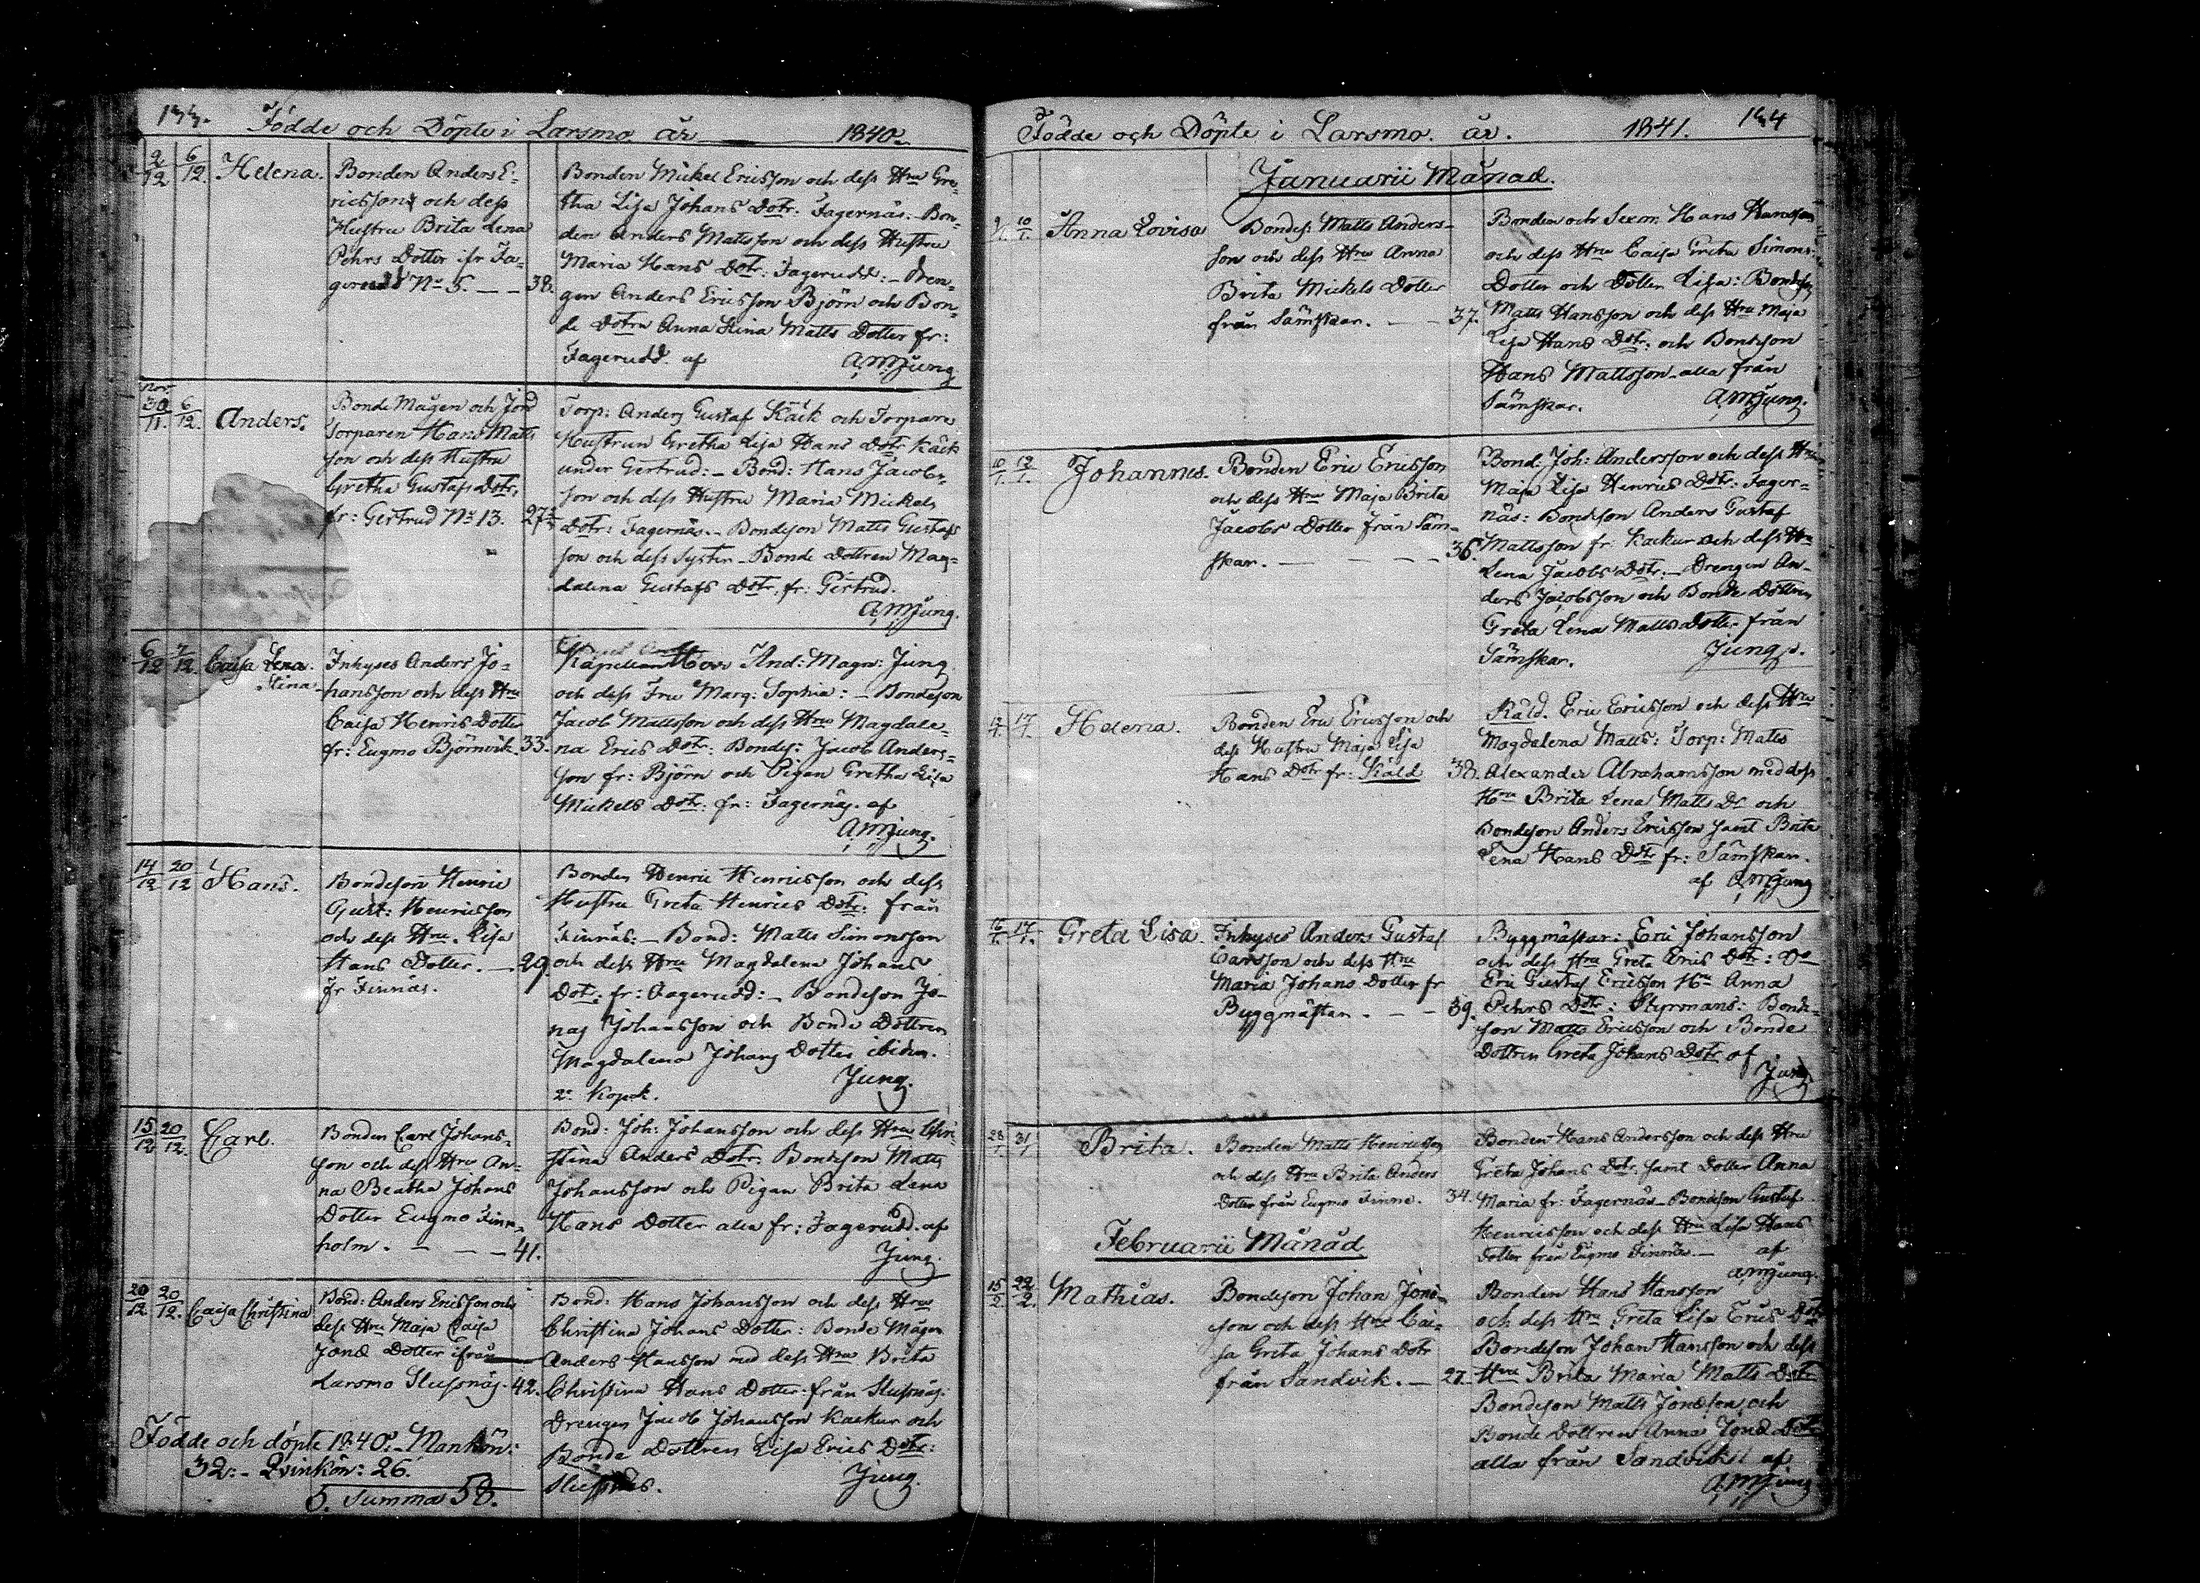 Födde och Döpte i Larsmo år 1840.
2/12 6/12 Helena.
Bonden Anders E=
ricsson och dess
Hustru Brita Lena
Pehrs Dotter ifr Fa=
gerudd No 5. — — 38.
Bonden Mickel Ericsson och dess Hru Gre=
tha Lisa Johans Dotr. Fagernäs. Bon=
den Anders Mattsson och dess Hustru
Maria Hans Dotr: Fagerudd: — Dren=
gen Anders Ericsson Björn och Bon=
de Dotrn Anna Stina Matts Dotter fr:
Fagerudd. af
A.M.Jung
Nov
30/11. 6/12. Anders.
Bonde Mågen och Jord
Torparen Hans Matts
son och dess Hustru
Gretha Gustafs Dotr,
fr: Gertrud No 13. 27
Torp: Anders Gustaf Käck och Torpare
Hustrun Gretha Lisa Hans Dotr Käck
under Gertrud: — Bond: Hans Jacobs=
son och dess Hustru Maria Mickels
Dotr: Fagernäs. — Bondeson Matts Gustafs
son och dess Syster — Bonde Dottren Mag=
dalena Gustafs Dotr. fr: Gertrud.
A.M.Jung.
6/12 7/12. Caisa Lena.
Stina
Inhyses Anders Jo=
hansson och dess Hru
Caisa Henrics Dotter
fr: Eugmo Björnvik. 33.
Kapellan Herr And: Magn: Jung
och dess Fru Marg: Sophia: — Bondeson
Jacob Mattsson och dess Hru Magdale=
na Erics Dotr: Bondes: Jacob Anders=
son fr: Björn och Pigan Gretha Lisa
Mickels Dotr: fr: Fagernäs. af
A.M.Jung.
14/12 20/12 Hans.
Bondeson Henric
Gust: Henricsson
och dess Hru. Lisa
Hans Dotter. — 29.
fr Finnäs.
Bonden Henric Henricsson och dess
Hustru Greta Henrics Dotr: från
Finnäs: — Bond: Matts Simonsson
och dess Hru Magdalena Johans
Dotr: fr: Fagerudd: — Bondeson Jo=
nas Johansson och Bonde Dottren
Magdalena Johans Dotter ibidm.
2: Kopek. Jung.
15/12 20/12. Carl.
Bonden Carl Johans=
son och dess Hru An=
na Beatha Johans
Dotter Eugmo Finn=
holm. — — — 41.
Bond: Joh: Johansson och dess Hru Chri=
stina Anders Dotr: Bondeson Matts
Johansson och Pigan Brita Lena
Hans Dotter alla fr: Fagerudd. af
Jung.
20/12. 20/12. Caisa Christina
Bond: Anders Ericsson och
dess Hru Maja Caisa
Jons Dotter ifrån
Larsmo Slussnäs. 42.
Bond: Hans Johansson och dess Hru
Christina Johans Dotter: Bonde Mågen
Anders Hansson med dess Hru Brita
Christina Hans Dotter från Slussnäs.
Drengen Jacob Johansson Kackur och
Bonde Dottren Lisa Erics Dotr:
Slussnäs. Jung.
Födde och döpte 1840: Mankön:
32: — Qvinkön: 26.
S. Summa 58.
Födde och Döpte i Larsmo. år. 1841. 134
Januarii Månad.
9/1. 10/1. Anna Lovisa
Bondes: Matts Anders=
son och dess Hru Anna
Brita Mickels Dotter
från Sämskar. — — 37.
Bonden och Sexm. Hans Hansson
och dess Hru Caisa Greta Simons
Dotter och Dotter Lisa: Bondeson
Matts Hansson och dess Hru Maja
Lisa Hans Dotr: och Bondson
Hans Mattsson alla från
Sämskar. A.M.Jung.
10/1. 12/1. Johannes.
Bonden Eric Ericsson
och dess Hru Maja Brita
Jacobs Dotter från Säm=
skar. — — — — 36.
Bond: Joh: Andersson och dess Hru
Maja Lisa Henrics Dotr: Fager=
näs: Bondeson Anders Gustaf
Mattsson fr. Kackur och dess Hru
Lena Jacobs Dotr: — Drengen An=
ders Jacobsson och Bonde Dottren
Greta Lena Matts Dotter från
Sämskar. Jung.
12/1. 17/1. Helena.
Bonden Eric Ericsson och
dess Hustru Maja Lisa
Hans Dotr fr: Kåld 38.
Kåld. Eric Ericsson och dess Hru
Magdalena Matts: Torp: Matts
Alexander Abrahamsson med dess
Hru Brita Lena Matts Dr och
Bondeson Anders Ericsson samt Brita
Lena Hans Dotr fr: Sämskar.
af A.M.Jung
16/1. 17/1. Greta Lisa.
Inhyses Anders Gustaf
Carlsson och dess Hru
Maria Johans Dotter fr
Byggmästar. — — 39.
Byggmästar: Eric Johansson
och dess Hru Greta Erics Dotr: Do
Eric Gustaf Ericsson Hru Anna
Pehrs Dotr: Styrmans: Bonde=
son Matts Ericsson och Bonde
Dottren Greta Johans Dotr af
Jung.
28/1 31/1 Brita.
Bonden Matts Henricsson
och dess Hru Brita Anders
Dotter från Eugmo Finne. 34.
Bonden Hans Andersson och dess Hru
Greta Johans Dotr: samt Dotter Anna
Maria fr: Fagernäs — Bondeson Gustaf
Henricsson och dess Hru Lisa Hans
Dotter från Eugmo Finnäs — af
A.M.Jung.
Februarii Månad
15/2. 22/2. Mathias.
Bondeson Johan Jons=
son och dess Hru Cai=
sa Greta Johans Dotr
från Sandvik. — 27.
Bonden Hans Hansson
och dess Hru Greta Lisa Erics Dotr
Bondeson Johan Hansson och dess
Hru Brita Maria Matts Dotr
Bondeson Matts Jonsson och
Bonde Dottren Anna Jons Dotr
alla från Sandvik af
A.M.Jung